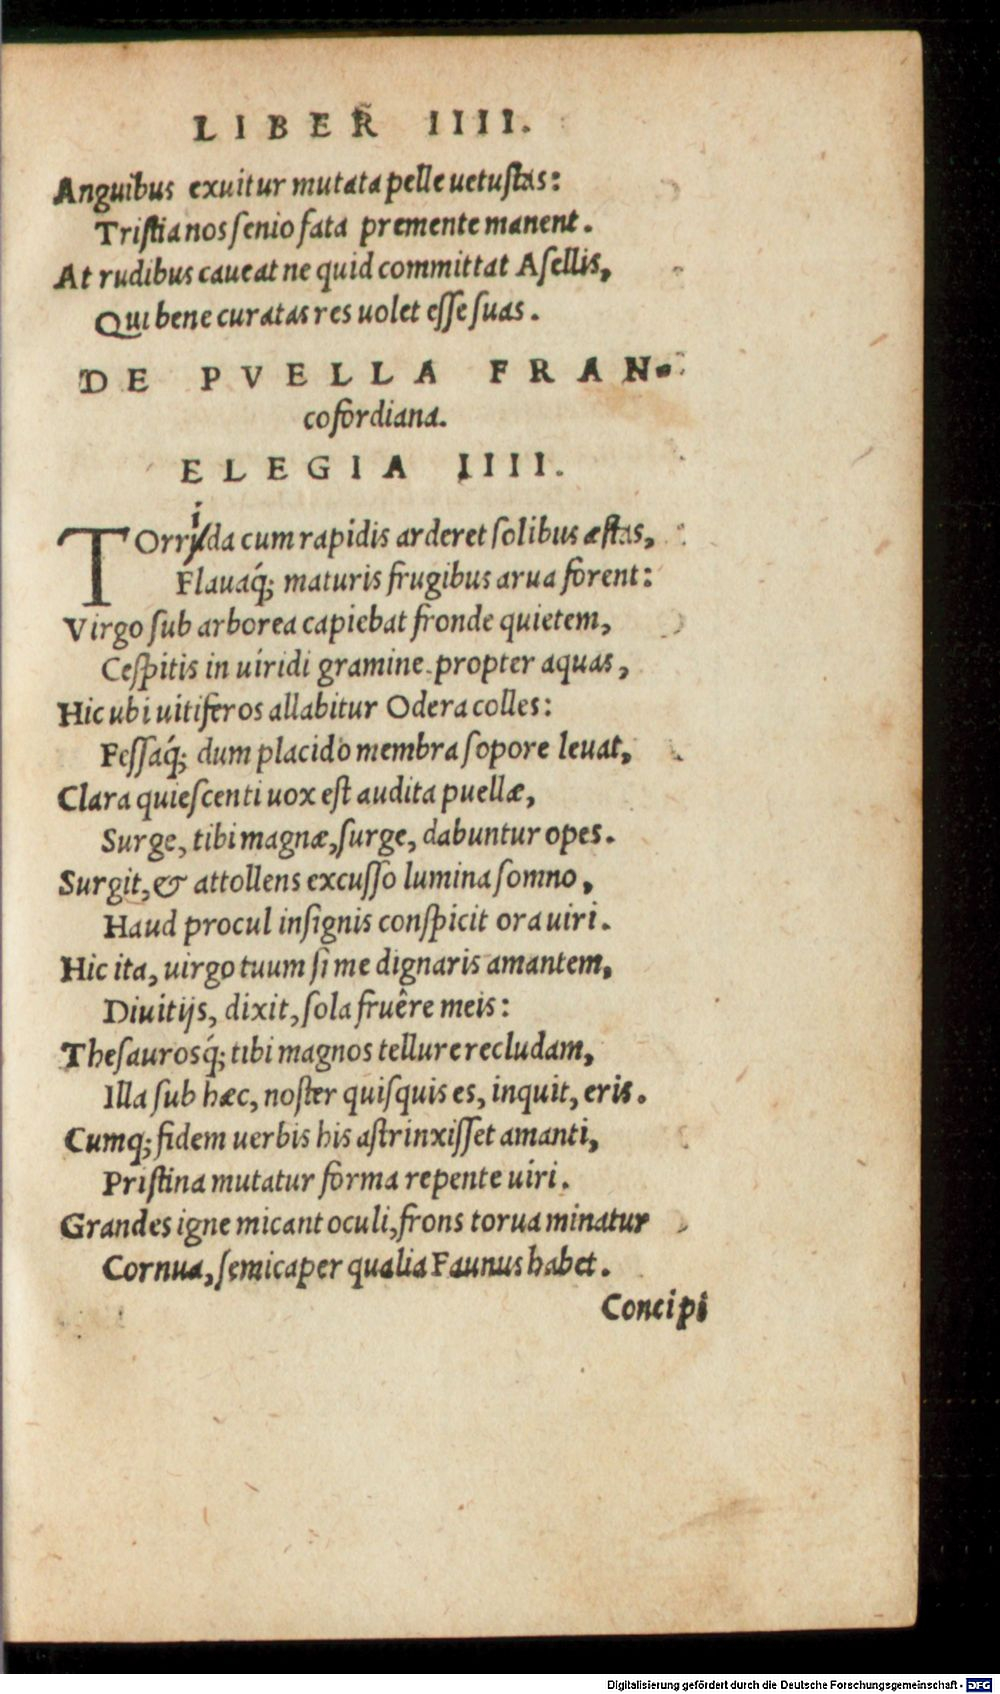 LIBER IIII.
Anguibus exuitur mutata pelle uetustas:
Tristia nos senio fata premente manent.
At rudibus caueat ne quid committat Asellis,
Qui bene curatas res uolet esse suas.
DE PVELLA FRAN-
cofordiana.
ELEGIA IIII.
TOrrida cum rapidis arderet solibus æstas,
Flauaq́; maturis frugibus arua forent:
Virgo sub arborea capiebat fronde quietem,
Cespitis in uiridi gramine propter aquas,
Hic ubi uitiferos allabitur Odera colles:
Fessaq́; dum placido membra sopore leuat,
Clara quiescenti uox est audita puellæ,
Surge, tibi magnæ, surge, dabuntur opes.
Surgit, & attollens excusso lumina somno,
Haud procul insignis conspicit ora uiri.
Hic ita, uirgo tuum si me dignaris amantem,
Diuitijs, dixit, sola fruêre meis:
Thesaurosq́; tibi magnos tellure recludam,
Illa sub hæc, noster quisquis es, inquit, eris.
Cumq; fidem uerbis his astrinxisset amanti,
Pristina mutatur forma repente uiri.
Grandes igne micant oculi, frons torua minatur
Cornua, semicaper qualia Faunus habet.
Concipi
Digitalisierung gefördert durch die Deutsche Forschungsgemeinschaft - DFG